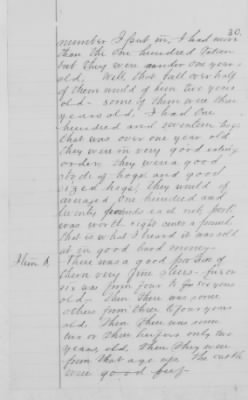 30.
number I put in. I had more
than the one hundred
but they were under one year
old. Well that fall over half
of them would of been two years
old - some of them were three
years old. I had one
hundred and seventeen hogs
that was over one year old
they were in very good eating
order. They were a good
body of hogs and good
sized hogs, they would of
averaged one hundred and
twenty pounds each net, pork
was worth eight cents a pound
that is what I heard it was sold
at in good hard money.
Item 8. There was a good portion of
them very fine steers - five or
six was from four to six years
old. Then there was some
others from three to four years
old. Then there was some
two or three heifers only two
years old. Then they were
from that age up. The cattle
were good beef